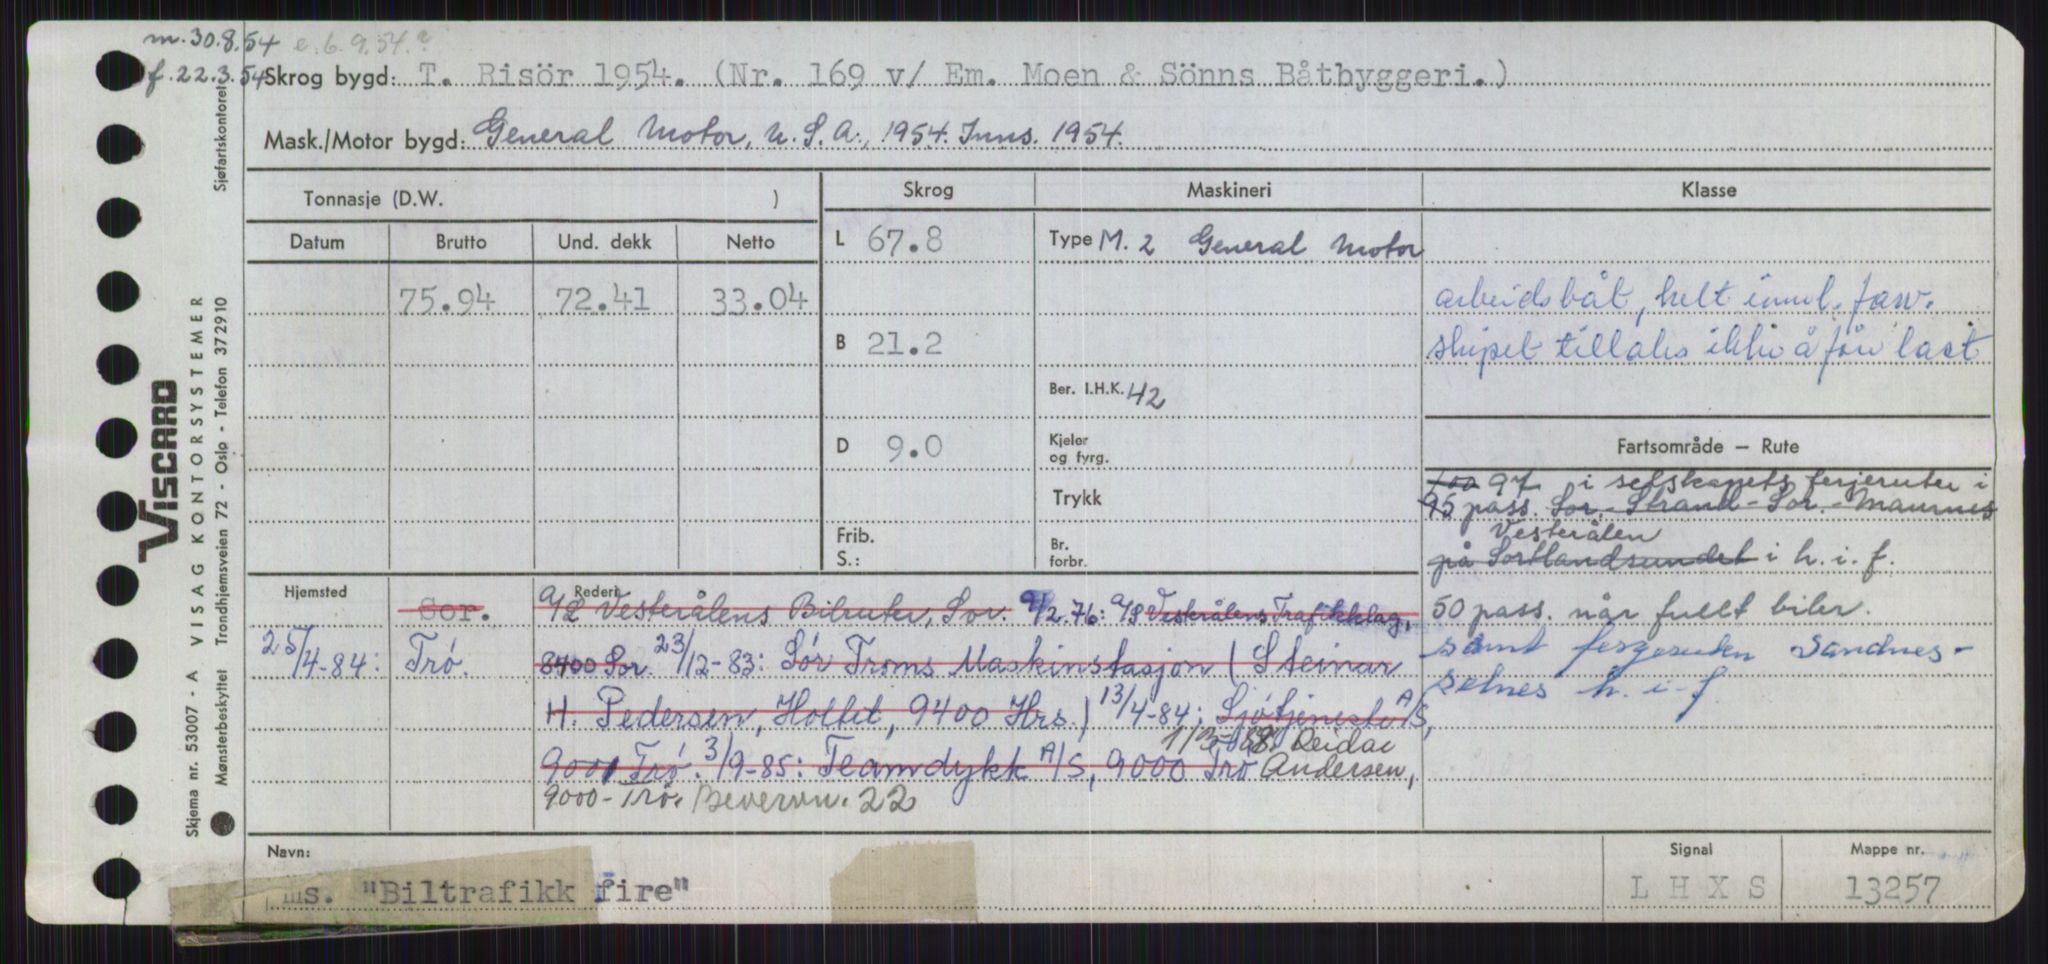 m. 30.8.54 e. 6.9.54.?
f. 22.3.54
Skrog bygd: T. Risör 1954. (Nr. 169 v/ Em. Moen & Sönns Båtbyggeri.)
Mask./Motor bygd: General Motor, U.S.A., 1954. Inns. 1954.
Tonnasje (D.W. )
Skrog
Maskineri
Klasse
Datum Brutto Und. dekk Netto
75.94 72.41 33.04
L 67.8
B 21.2
D 9.0
Frib.
S.:
Type M. 2 General Motor
Ber. I.H.K. 42
Kjeler
og fyrg.
Trykk
Br.
forbr.
arbeidsbåt, helt innl. farv.
skipet tillates ikke å før last
Fartsområde – Rute
100 97 i selskapets ferjeruter i
95 pass. Sor. - Strand - Sor. - Maurnes
Vesterålen
på Sortlandsundet i h. i. f.
50 pass. når fullt biler.
samt fergeruten Sandnes-
selnes h. i. f
Hjemsted
Rederi
Sor.
25/4-84: Trø.
A/L Vesterålens Bilruter, Sor. 2/2.76: A/S Vesterålens Trafikklag,
8400 Sor. 23/12-83: Sør Troms Maskinstasjon (Steinar
H. Pedersen, Holtet, 9400 Hrs.) 13/4-84: Sjøtjeneste A/S,
9001 Trø. 3/9-85: Teamdykk A/S, 9000 Trø
Reidar
Andersen,
9000 - Trø. Bevervn. 22
Navn:
ms. "Biltrafikk fire"
Signal
L H X S
Mappe nr.
13257
VISCARD
VISAG KONTORSYSTEMER
Skjema nr. 53007 - A
Mønsterbeskyttet Trondhjemsveien 72 - Oslo - Telefon 372910
Sjøfartskontoret